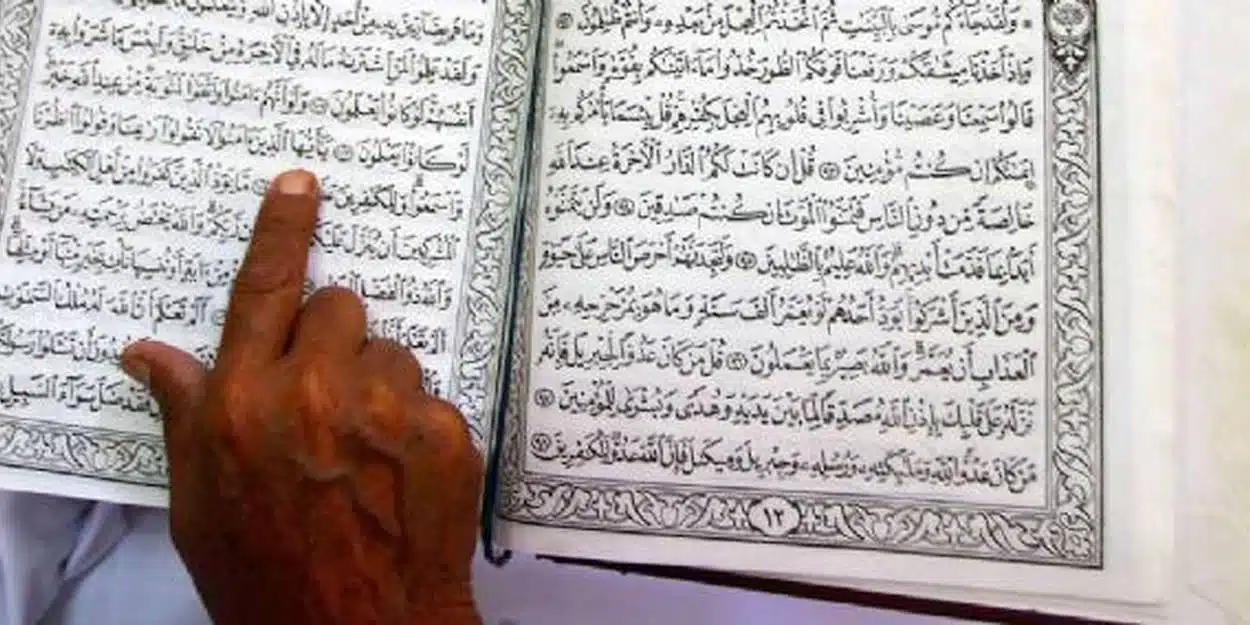 وَلَقَدْ جَاءَكُم مُّوسَىٰ بِالْبَيِّنَٰتِ ثُمَّ اتَّخَذْتُمُ الْعِجْلَ مِنْ بَعْدِهِ وَأَنتُمْ ظَٰلِمُونَ
وَإِذْ أَخَذْنَا مِيثَٰقَكُمْ وَرَفَعْنَا فَوْقَكُمُ الطُّورَ خُذُوا مَا ءَاتَيْنَٰكُم بِقُوَّةٍ وَاسْمَعُوا
قَالُوا سَمِعْنَا وَعَصَيْنَا وَأُشْرِبُوا فِي قُلُوبِهِمُ الْعِجْلَ بِكُفْرِهِمْ قُلْ بِئْسَمَا يَأْمُرُكُم بِهِ
إِيمَٰنُكُمْ إِن كُنتُم مُّؤْمِنِينَ ٩٣ قُلْ إِن كَانَتْ لَكُمُ الدَّارُ الْأَخِرَةُ عِندَ اللَّهِ
خَالِصَةً مِّن دُونِ النَّاسِ فَتَمَنَّوُا الْمَوْتَ إِن كُنتُمْ صَٰدِقِينَ ٩٤ وَلَن يَتَمَنَّوْهُ
أَبَدًا بِمَا قَدَّمَتْ أَيْدِيهِمْ وَاللَّهُ عَلِيمٌ بِالظَّٰلِمِينَ ٩٥ وَلَتَجِدَنَّهُمْ أَحْرَصَ النَّاسِ عَلَىٰ حَيَوٰةٍ
وَمِنَ الَّذِينَ أَشْرَكُوا يَوَدُّ أَحَدُهُمْ لَوْ يُعَمَّرُ أَلْفَ سَنَةٍ وَمَا هُوَ بِمُزَحْزِحِهِ مِنَ
الْعَذَابِ أَن يُعَمَّرَ وَاللَّهُ بَصِيرٌ بِمَا يَعْمَلُونَ ٩٦ قُلْ مَن كَانَ عَدُوًّا لِّجِبْرِيلَ فَإِنَّهُ
نَزَّلَهُ عَلَىٰ قَلْبِكَ بِإِذْنِ اللَّهِ مُصَدِّقًا لِّمَا بَيْنَ يَدَيْهِ وَهُدًى وَبُشْرَىٰ لِلْمُؤْمِنِينَ ٩٧
مَن كَانَ عَدُوًّا لِّلَّهِ وَمَلَٰئِكَتِهِ وَرُسُلِهِ وَجِبْرِيلَ وَمِيكَىٰلَ فَإِنَّ اللَّهَ عَدُوٌّ لِّلْكَٰفِرِينَ ٩٨
١٢
وَلَقَدْ عَلِمُوا لَمَنِ اشْتَرَىٰهُ مَا لَهُ فِي الْأَخِرَةِ مِنْ خَلَٰقٍ وَلَبِئْسَ مَا شَرَوْا بِهِ
أَنفُسَهُمْ لَوْ كَانُوا يَعْلَمُونَ ١٠٢ وَلَوْ أَنَّهُمْ ءَامَنُوا وَاتَّقَوْا لَمَثُوبَةٌ مِّنْ عِندِ اللَّهِ خَيْرٌ
لَّوْ كَانُوا يَعْلَمُونَ ١٠٣ يَٰأَيُّهَا الَّذِينَ ءَامَنُوا لَا تَقُولُوا رَٰعِنَا وَقُولُوا انظُرْنَا
وَاسْمَعُوا وَلِلْكَٰفِرِينَ مَا يَوَدُّ الَّذِينَ كَفَرُوا مِنْ أَهْلِ الْكِتَٰبِ وَلَا
الْمُشْرِكِينَ أَن يُنَزَّلَ عَلَيْكُم وَاللَّهُ يَخْتَصُّ بِرَحْمَتِهِ مَن يَشَاءُ
وَاللَّهُ ذُو الْفَضْلِ مِنْ ءَايَةٍ أَوْ نُنسِهَا نَأْتِ بِخَيْرٍ مِّنْهَا أَوْ مِثْلِهَا
أَلَمْ تَعْلَمْ أَنَّ اللَّهَ لَهُ مُلْكُ السَّمَٰوَٰتِ
سَوَاءَ السَّبِيلِ